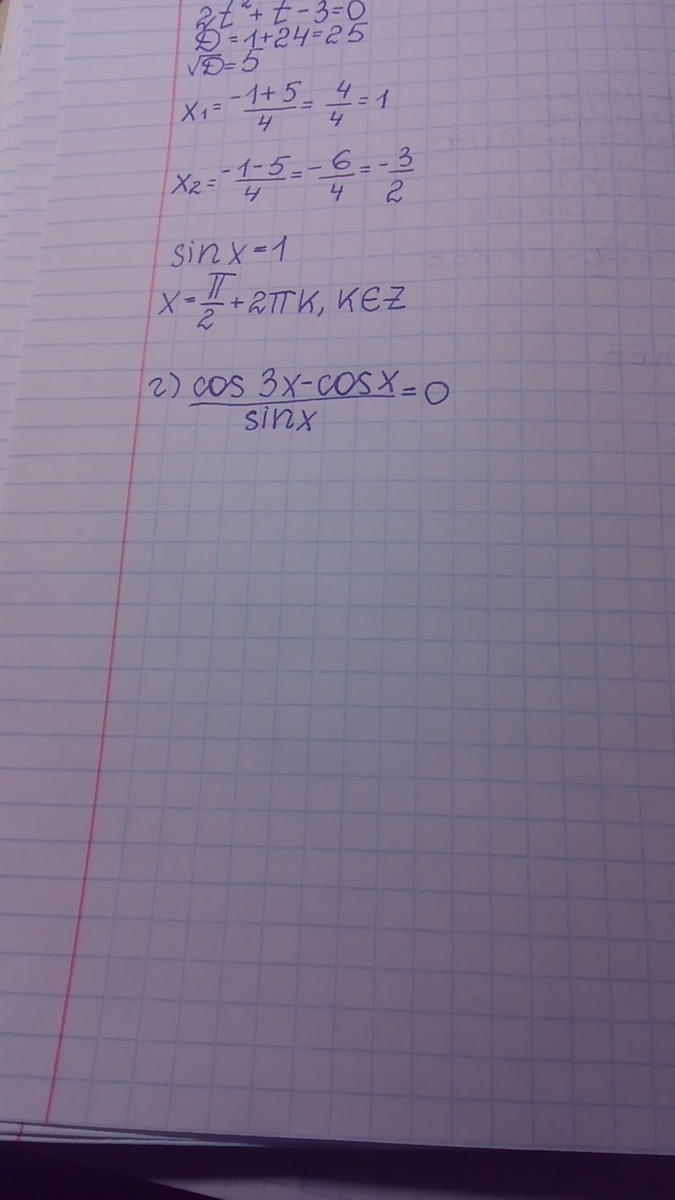 2t² + t - 3 = 0
D = 1 + 24 = 25
√D = 5
x₁ = (-1 + 5)/4 = 4/4 = 1
x₂ = (-1 - 5)/4 = -6/4 = -3/2
sin x = 1
x = π/2 + 2πk, k∈Z
г) (cos 3x - cos x)/sin x = 0